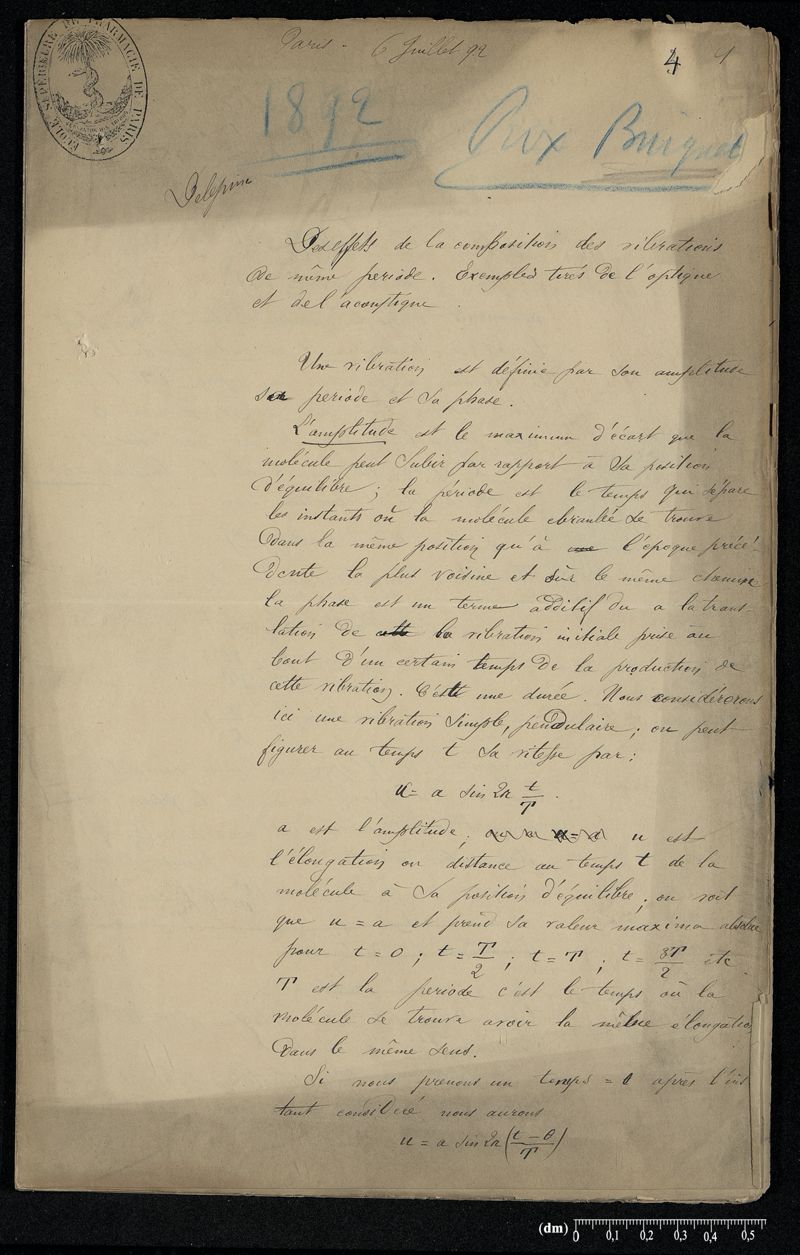 ÉCOLE SUPÉRIEURE DE PHARMACIE DE PARIS
Paris - 6 Juillet 92
4
1892
Prix Buignet
Delépine
Des effets de la composition des vibrations
de même periode. Exemples tirés de l'optique
et de l'acoustique.
Une vibration est définie par son amplitude
sa periode et sa phase.
L'amplitude est le maximum d'écart que la
molécule peut subir par rapport à sa position
d'équilibre ; la période est le temps qui sépare
les instants où la molécule ebranlée se trouve
dans la même position qu'à l'époque précé-
dente la plus voisine et sur le même chemin
la phase est un terme additif du a la trans-
lation de la vibration initiale prise au
bout d'un certain temps de la production de
cette vibration. C'est une durée. Nous considérerons
ici une vibration simple, pendulaire ; on peut
figurer au temps t sa vitesse par :
u = a sin 2π t/T .
a est l'amplitude ; u est
l'élongation ou distance au temps t de la
molécule à sa position d'équilibre ; on voit
que u = a et prend sa valeur maxima absolue
pour t = 0 ; t = T/2 ; t = T ; t = 3T/2 etc
T est la periode c'est le temps où la
molécule se trouve avoir la même élongation
dans le même sens.
Si nous prenons un temps = θ après l'ins
tant considéré nous aurons
u = a sin 2π (t - θ/T)
(dm) 0 0,1 0,2 0,3 0,4 0,5